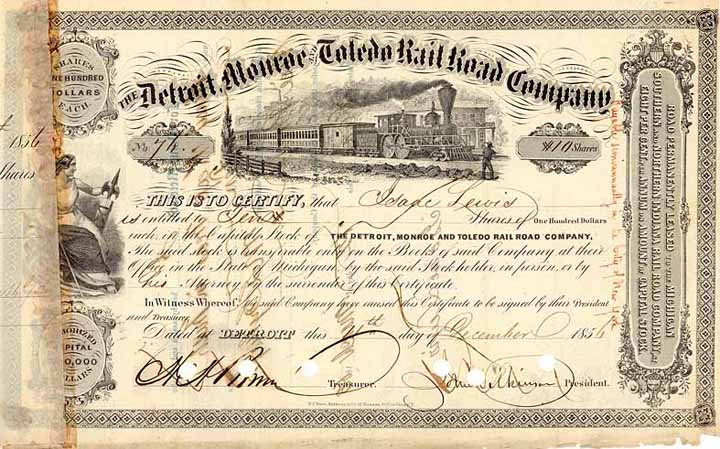 THE Detroit, Monroe AND Toledo Rail Road Company
SHARES
ONE HUNDRED
DOLLARS
EACH.
1856
Shares
No 76
$10 Shares
THIS IS TO CERTIFY, that Isaac Lewis
is entitled to Shares of One Hundred Dollars
each, in the Capital Stock of THE DETROIT, MONROE AND TOLEDO RAIL ROAD COMPANY.
The said stock is transferable only on the Books of said Company at their
Office in the State of Michigan, by the said Stockholder, in person, or by
his Attorney by the surrender of this Certificate.
In Witness Whereof, the said Company have caused this Certificate to be signed by their President
and Treasurer.
Dated at DETROIT this day of December 1856
Treasurer. John Wilkinson President.
CAPITAL
DOLLARS
ROAD PERMANENTLY LEASED TO THE MICHIGAN
SOUTHERN AND NORTHERN INDIANA RAIL ROAD COMPANY, FOR
EIGHT PER CENT. PER ANNUM ON AMOUNT OF CAPITAL STOCK